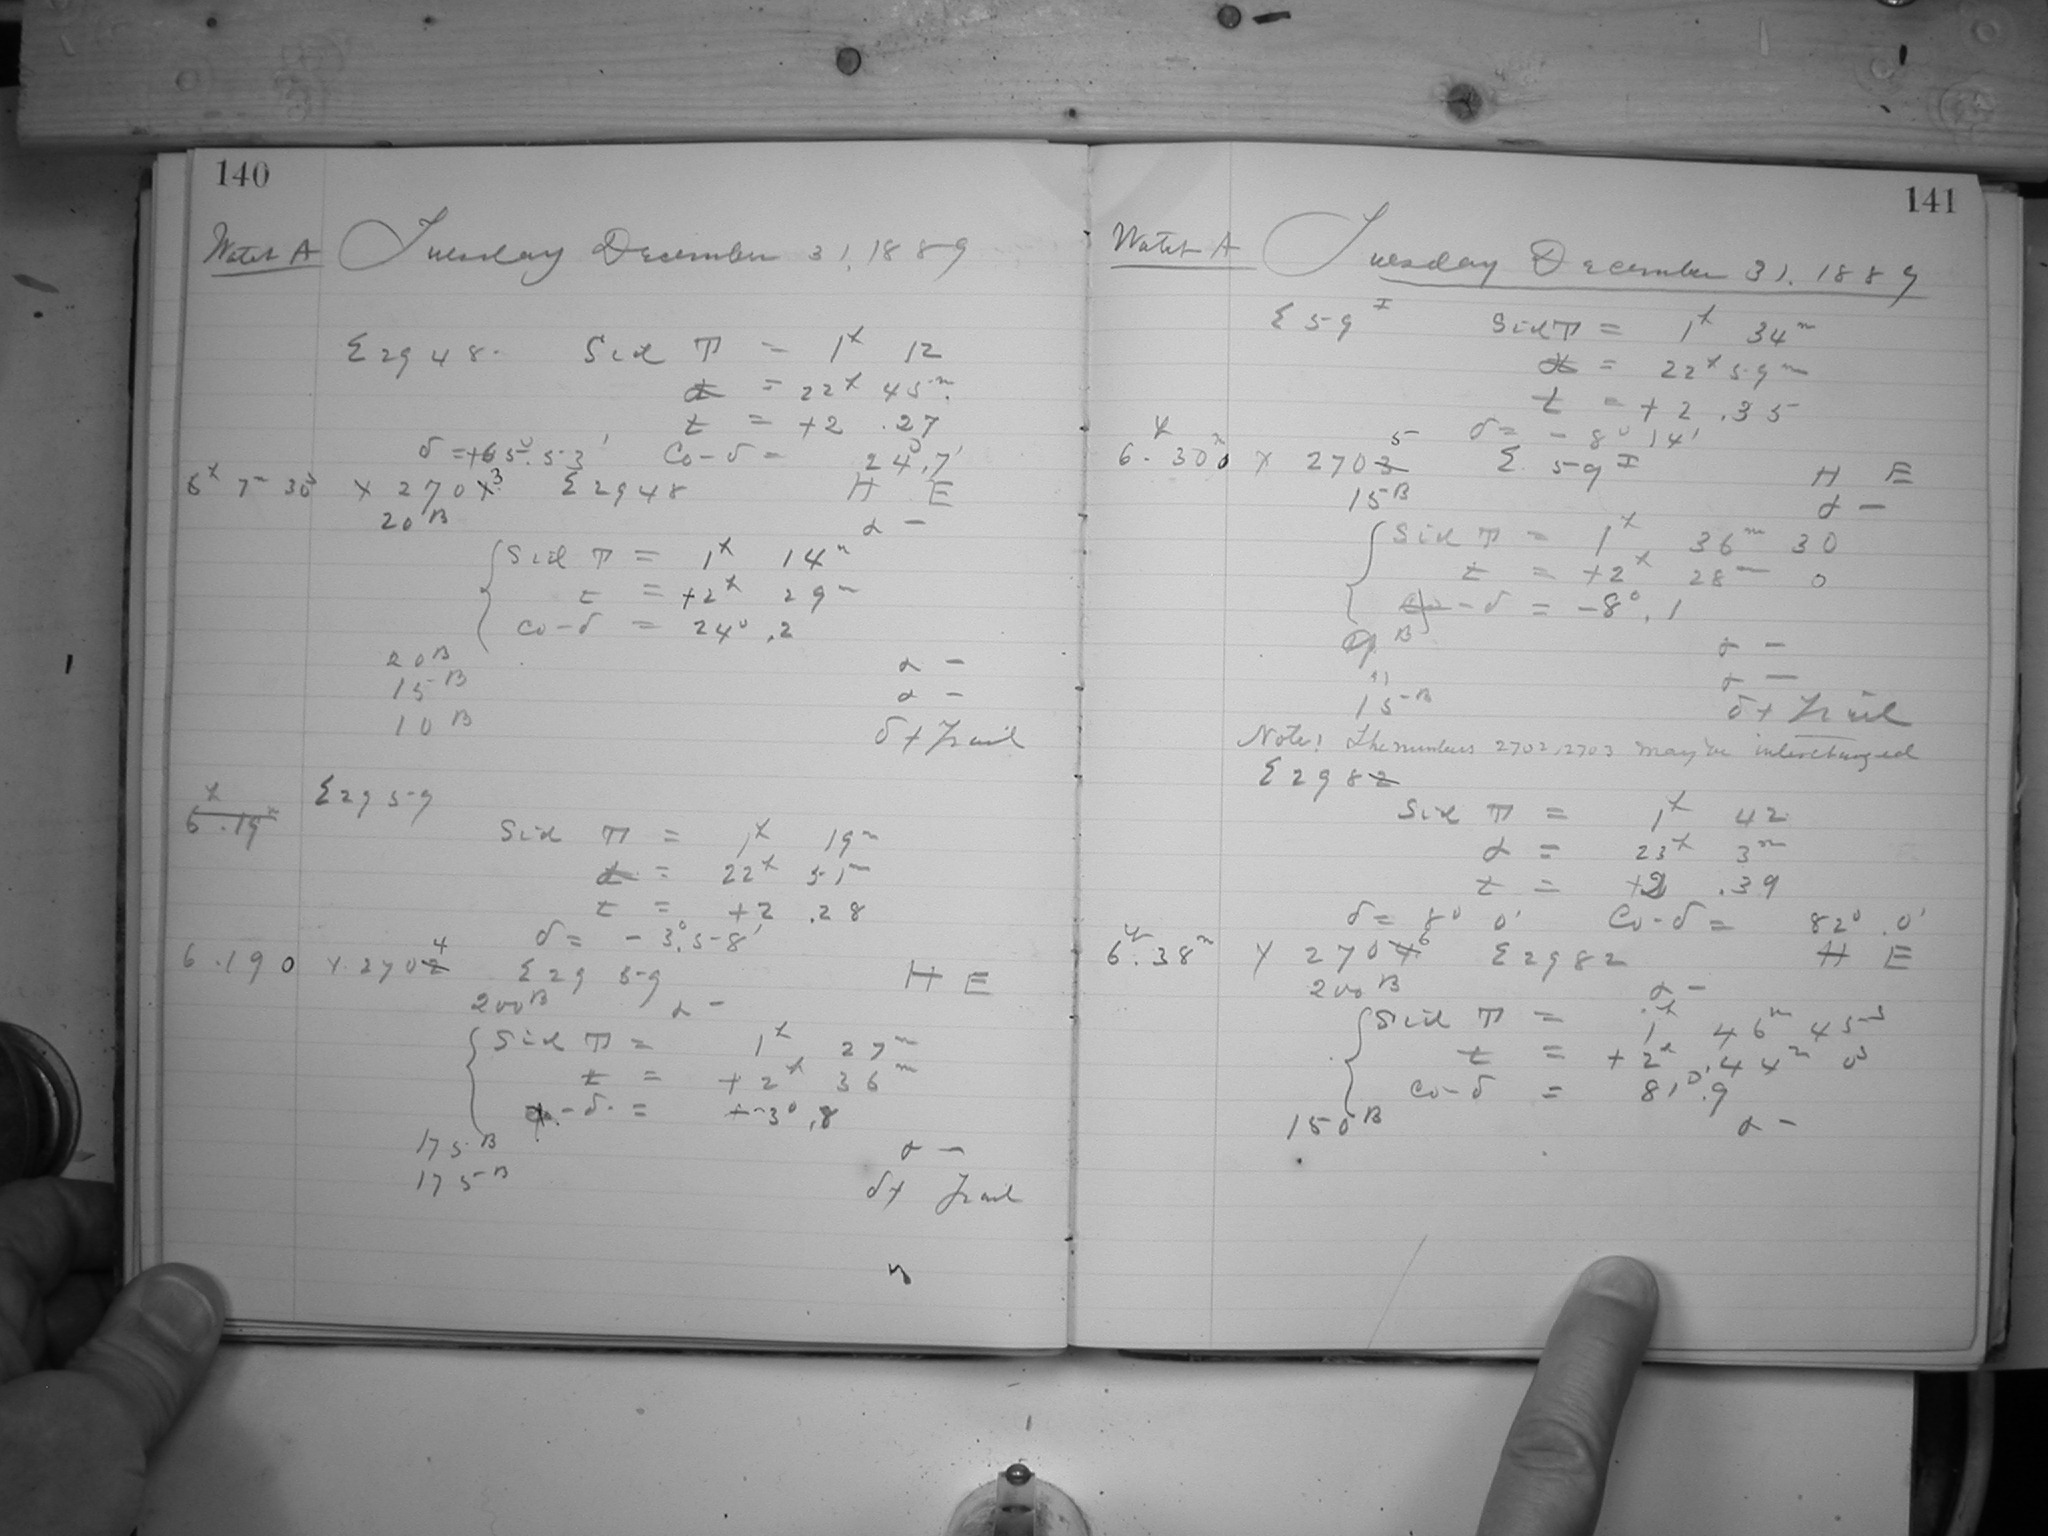 140
Watch A Tuesday December 31, 1889
Σ 2948. Sid T = 1h 12
α = 22h 45m.
t = +2 .27
δ = +65°.53' Co-δ = 24°.7'
6h 7m 30s X 2703 Σ 2948 H E
20B α -
Sid T = 1h 14m
t = +2h 29m
Co-δ = 24°.2
20B α -
15B α -
10B δ+ Trail
6h.19m Σ 2959
Sid T = 1h 19m
α = 22h 51m
t = +2 .28
δ = -3°.58'
6.19 0 X 2704 Σ 2959 H E
200B α -
Sid T = 1h 27m
t = +2h 36m
δ = -3°.8
175B α -
175B δ+ Trail
141
Watch A Tuesday December 31, 1889
Σ 59 I Sid T = 1h 34m
α = 22h 59m
t = +2 .35
δ = -8° 14'
6h.30m 0 X 2705 Σ. 59 I H E
15B α -
Sid T = 1h 36m 30
t = +2h 28m 0
δ = -8°.1
B α -
" α -
15B δ+ Trail
Note! The numbers 2702, 2703 may be interchanged
Σ 2982
Sid T = 1h 42
α = 23h 3m
t = +2 .39
δ = 8° 0' Co-δ = 82°.0'
6h.38m X 2706 Σ 2982 H E
200B α -
Sid T = 1h 46m 45s
t = +2h.44m 0s
Co-δ = 81°.9
150B α -